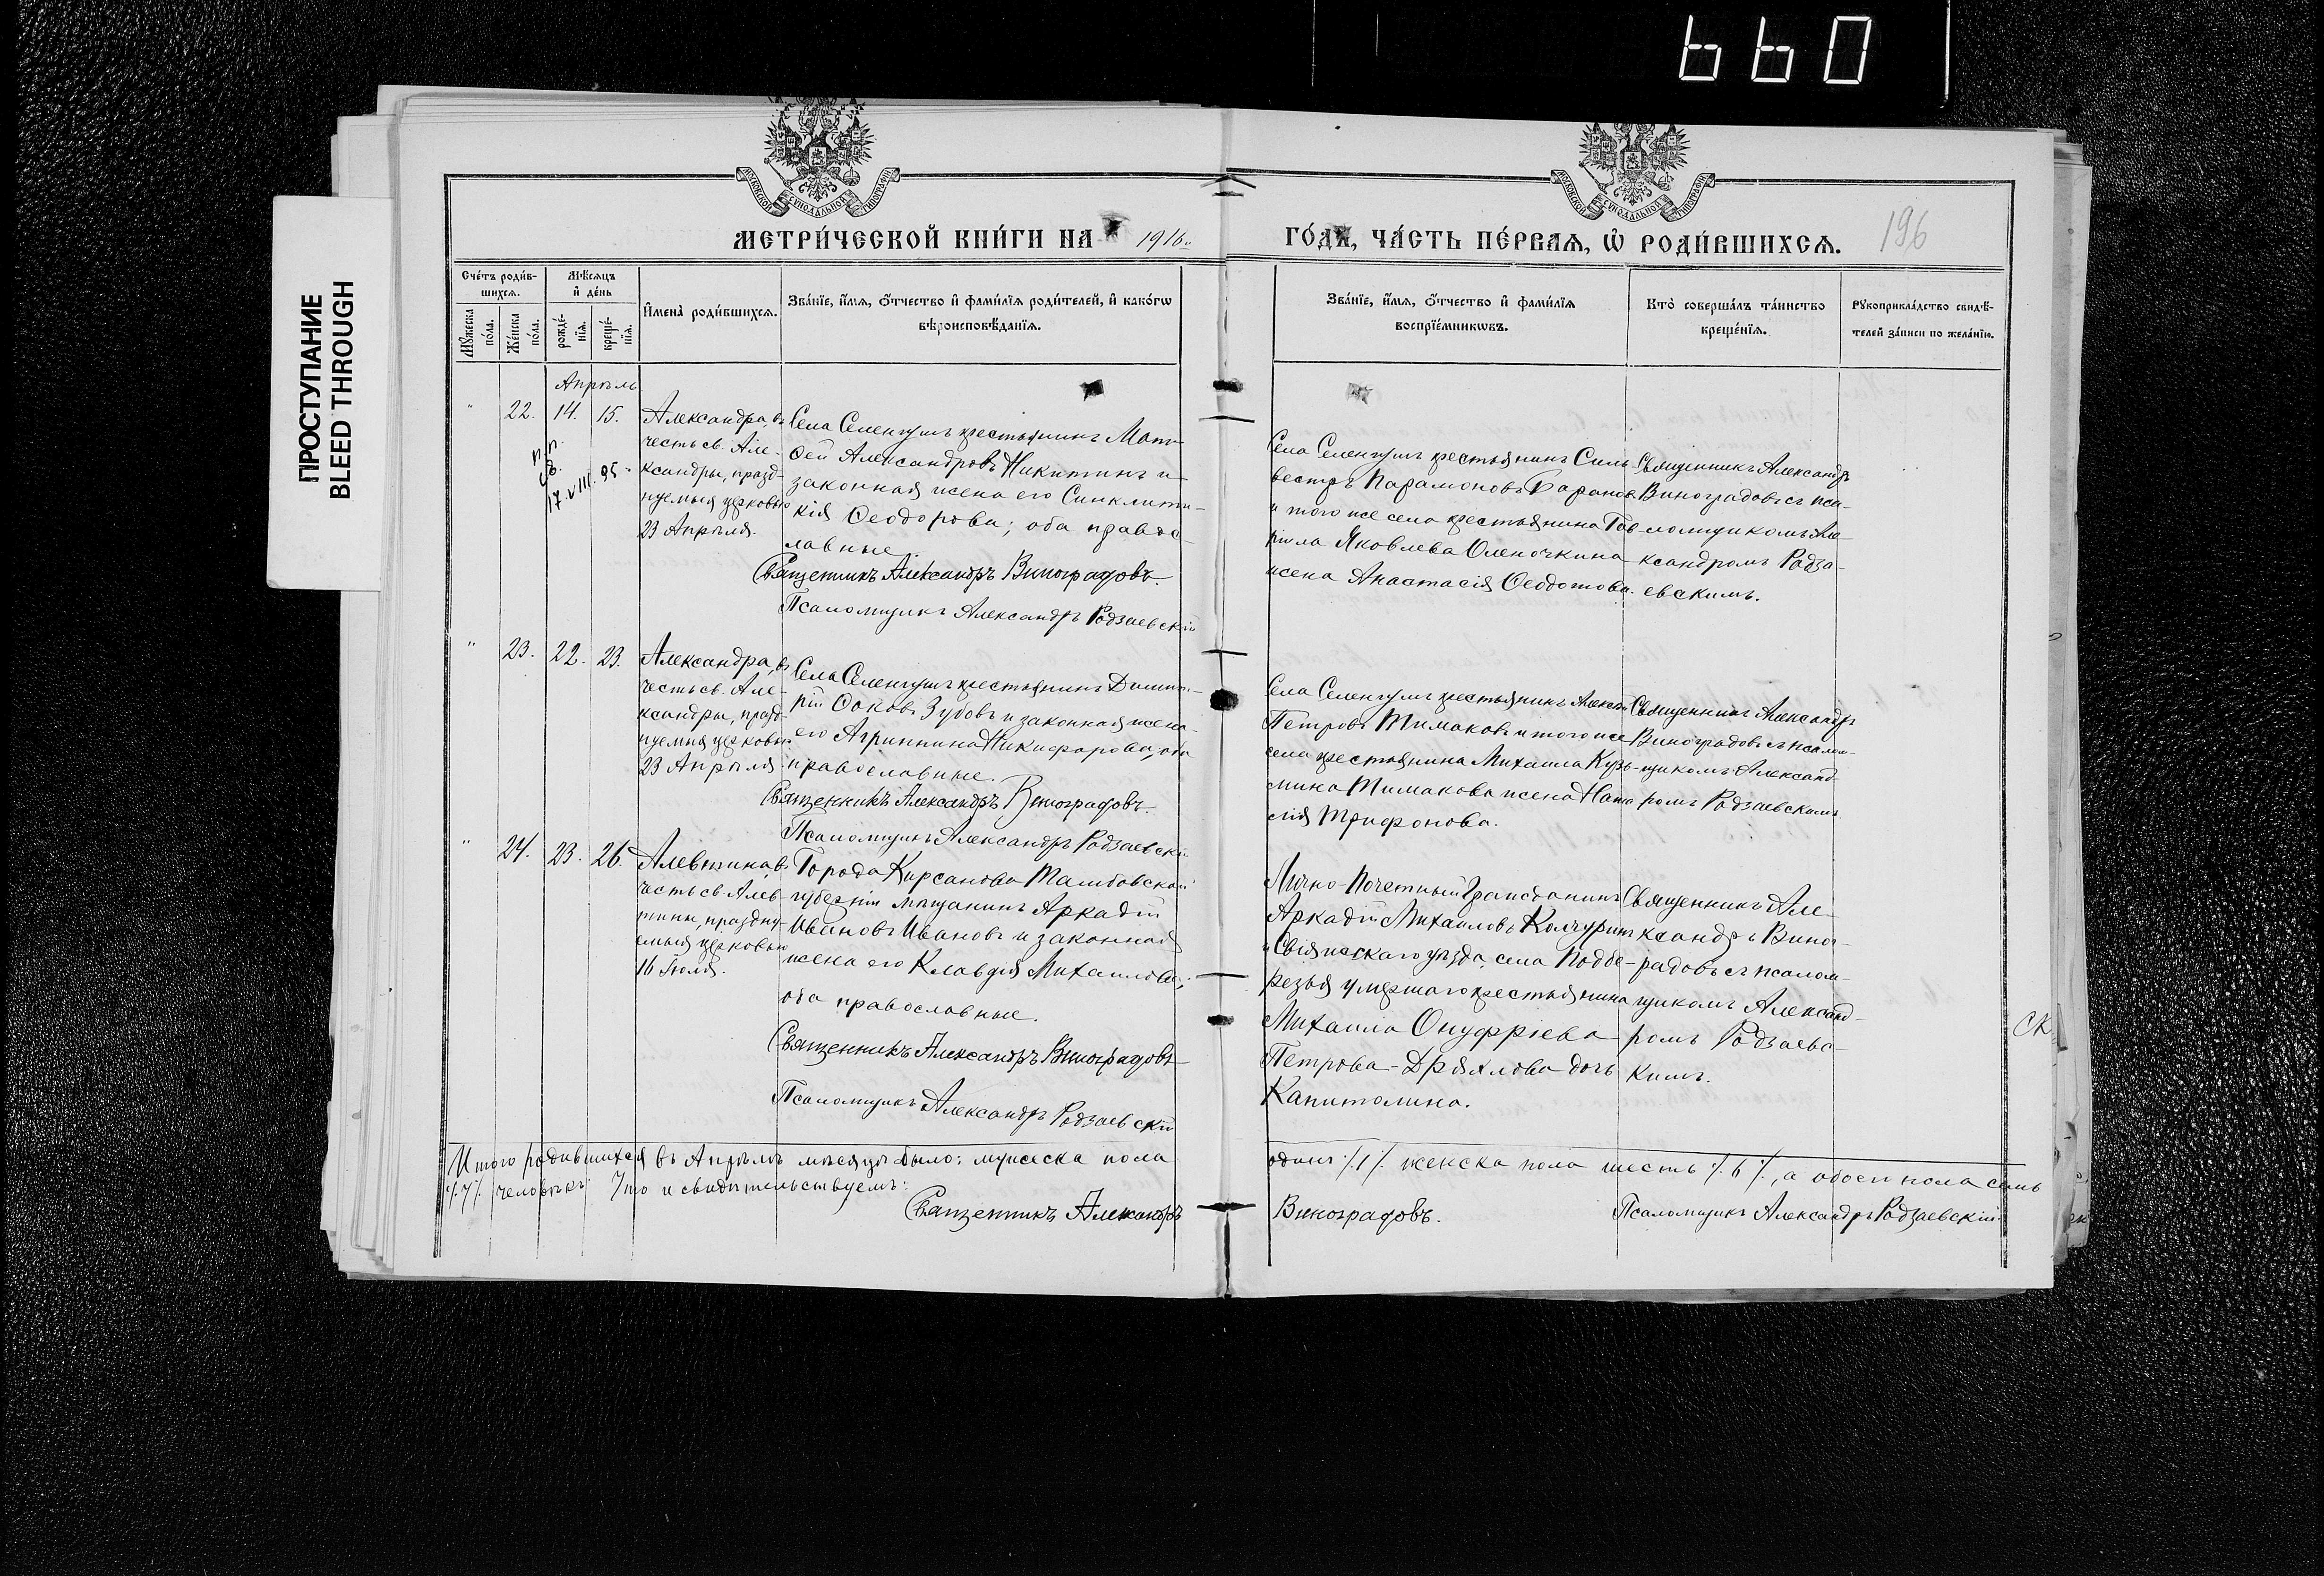 660
ПРОСТУПАНИЕ
BLEED THROUGH
МОСКОВСКОЙ СУНОДАЛЬНОЙ ТИПОГРАФІИ
МОСКОВСКОЙ СУНОДАЛЬНОЙ ТИПОГРАФІИ
МЕТРИ́ЧЕСКОЙ КНИ́ГИ НА 1916 г.
ГО́ДѦ, ЧА́СТЬ ПЕ́РВАѦ, Ѽ РОДИ́ВШИХСѦ.
196
Сче́тъ роди́в-
шихся.
Мꙋ́жеска по́ла.
Же́нска по́ла.
Мѣ́сяцъ
и҆ де́нь
рожде́-
нїѧ.
креще́-
нїѧ.
И҆мена̀ роди́вшихся.
Зва́нїе, и҆́мѧ, ѻ҆́тчество и҆ фами́лїѧ роди́телей, и҆ како́гѡ
вѣроисповѣ́данїѧ.
Зва́нїе, и҆́мѧ, ѻ҆́тчество и҆ фами́лїѧ
воспрїе́мникѡвъ.
Кто̀ соверша́лъ та́инство
креще́нїѧ.
Рꙋкоприкла́дство свидѣ́-
телей за́писи по жела́нїю.
Апрѣль
" 22. 14. 15.
п.п.
св.
17.VIII.95
Александра, въ
честь св. Але-
ксандры, празд-
нуемыя церковью
23 Апрѣля.
Села Селенгушъ крестьянинъ Мат-
ѳей Александровъ Никитинъ и
законная жена его Синклити-
кія Ѳеодорова; оба правос-
лавные.
Священникъ Александръ Виноградовъ.
Псаломщикъ Александръ Родзаевскій
Села Селенгушъ крестьянинъ Силь-
вестръ Парамоновъ Барановъ
и того же села крестьянина Гав-
ріила Яковлева Оленочкина
жена Анастасія Ѳеодотова.
Священникъ Александръ
Виноградовъ съ пса-
ломщикомъ Але-
ксандромъ Родза-
евскимъ.
" 23. 22. 23.
Александра, въ
честь св. Але-
ксандры, празд-
нуемыя церковью
23 Апрѣля
Села Селенгушъ крестьянинъ Димит-
рій Ѳоковъ Зубовъ и законная жена
его Агриппина Никифорова, оба
православные.
Священникъ Александръ Виноградовъ
Псаломщикъ Александръ Родзаевскій
Села Селенгушъ крестьянинъ Алексѣй
Петровъ Тимаковъ и того же
села крестьянина Михаила Кузь-
мина Тимакова жена Ната
лія Трифонова.
Священникъ Александръ
Виноградовъ съ псалом-
щикомъ Александ-
ромъ Родзаевскимъ
" 24. 23. 26.
Алевтина, въ
честь св. Алев-
тины, праздну-
емыя церковью
16 Іюля.
Города Кирсанова Тамбовской
губерніи мѣщанинъ Аркадій
Ивановъ Ивановъ и законная
жена его Клавдія Михаилова;
оба православные.
Священникъ Александръ Виноградовъ
Псаломщикъ Александръ Родзаевскій
Лично-Почетный Гражданинъ
Аркадій Михаиловъ Колчуринъ
и Свіяжскаго уѣзда, села Подбе-
резья умершаго крестьянина
Михаила Онуфріева
Петрова-Дряхлова дочь
Капитолина.
Священникъ Але-
ксандръ Виног-
радовъ съ псалом-
щикомъ Александ-
ромъ Родзаевс-
кимъ.
СК
Итого родившихся въ Апрѣлѣ мѣсяцѣ было: мужеска пола одинъ /.1/. женска пола шесть /.6/., а обоего пола семь
/.7/. человѣкъ. Что и свидѣтельствуемъ:
Священникъ Александръ Виноградовъ. Псаломщикъ Александръ Родзаевскій.